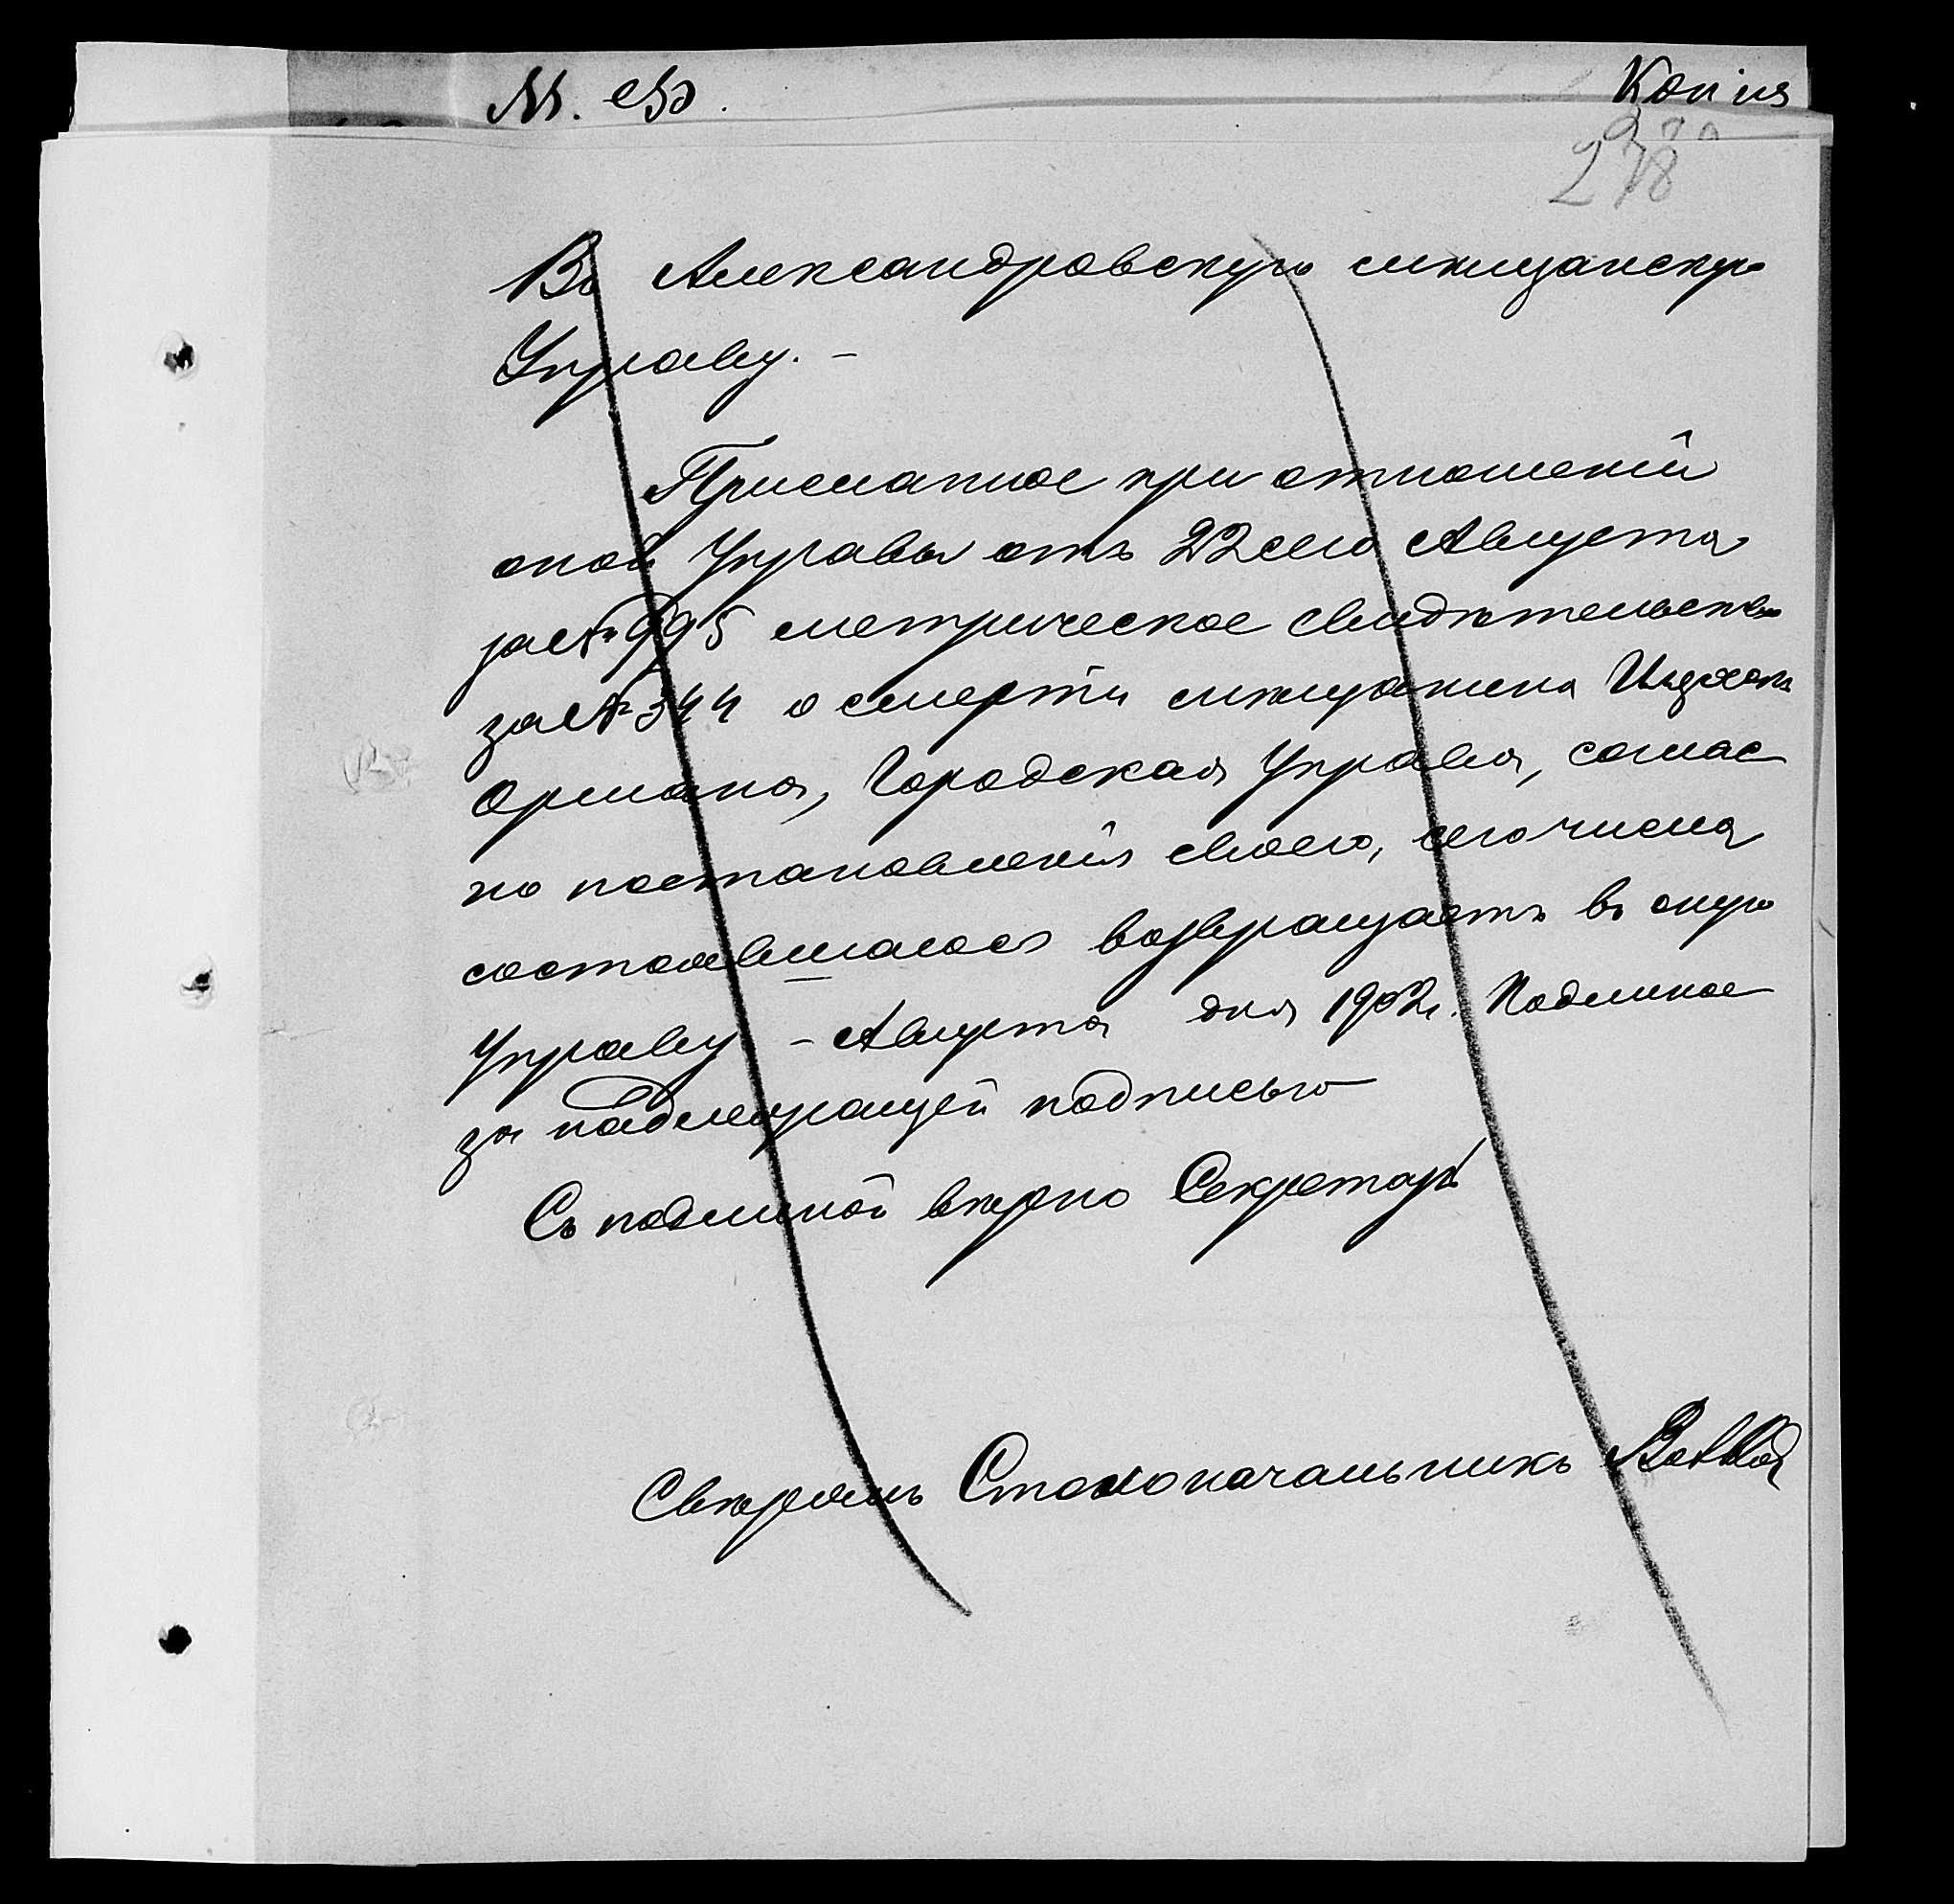 М. В. Д.
Копия
238
Въ Александровскую мѣщанскую
Управу. –
Присланное при отношеніи
оной Управы отъ 22 сего Августа
за № 995 метрическое свидѣтельство
за № 344 о смерти мѣщанина Ицхока
Ормана, Городская Управа, соглас
но постановленія своего, сего числа
состоявшагося возвращаетъ въ оную
Управу – Августа дня 1902 г. Подлинное
за надлежащей подписью
Съ подлиной вѣрно Секретарь
Свѣрялъ Столоначальникъ